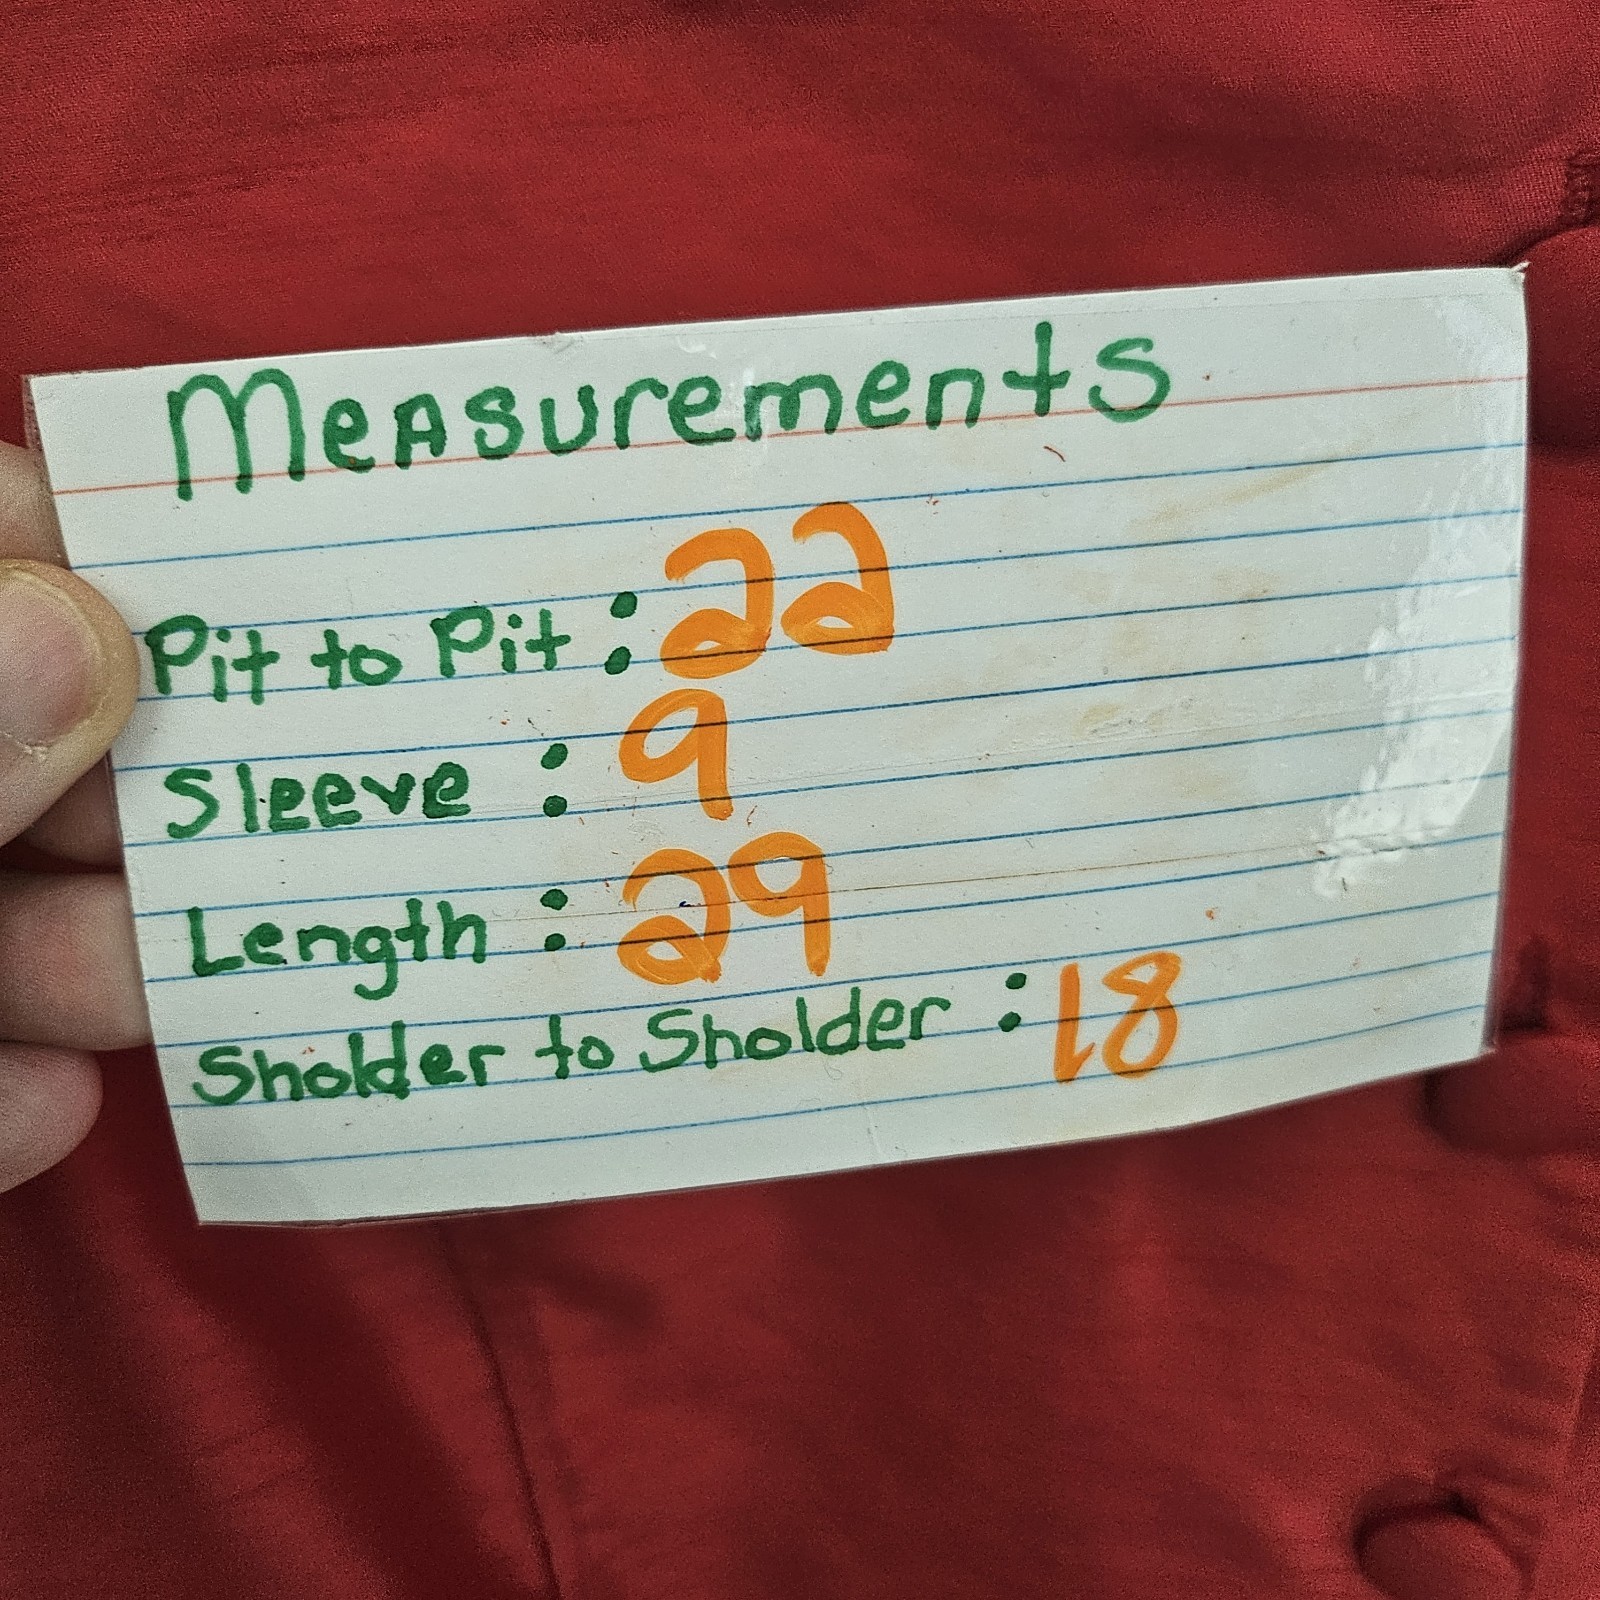 Measurements
Pit to Pit : 22
Sleeve : 9
Length : 29
Sholder to Sholder : 18